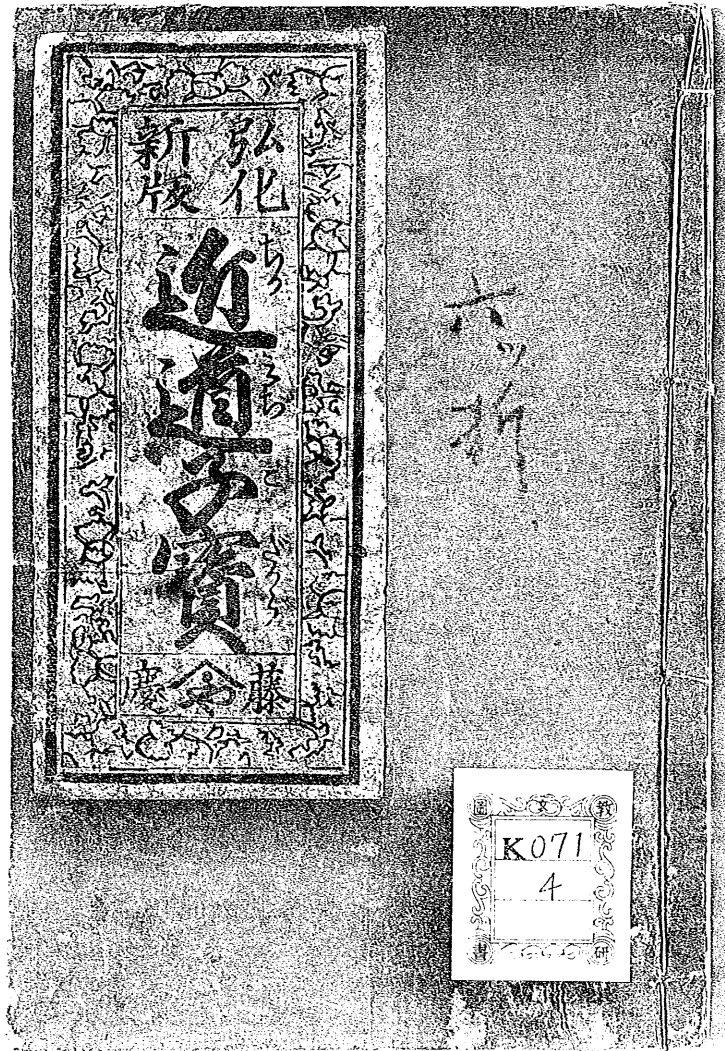 弘化
新版
近道子寳
ちか
みち
こ
だから
藤
慶
六ツ折
教
文
圖
K071
4
研
書